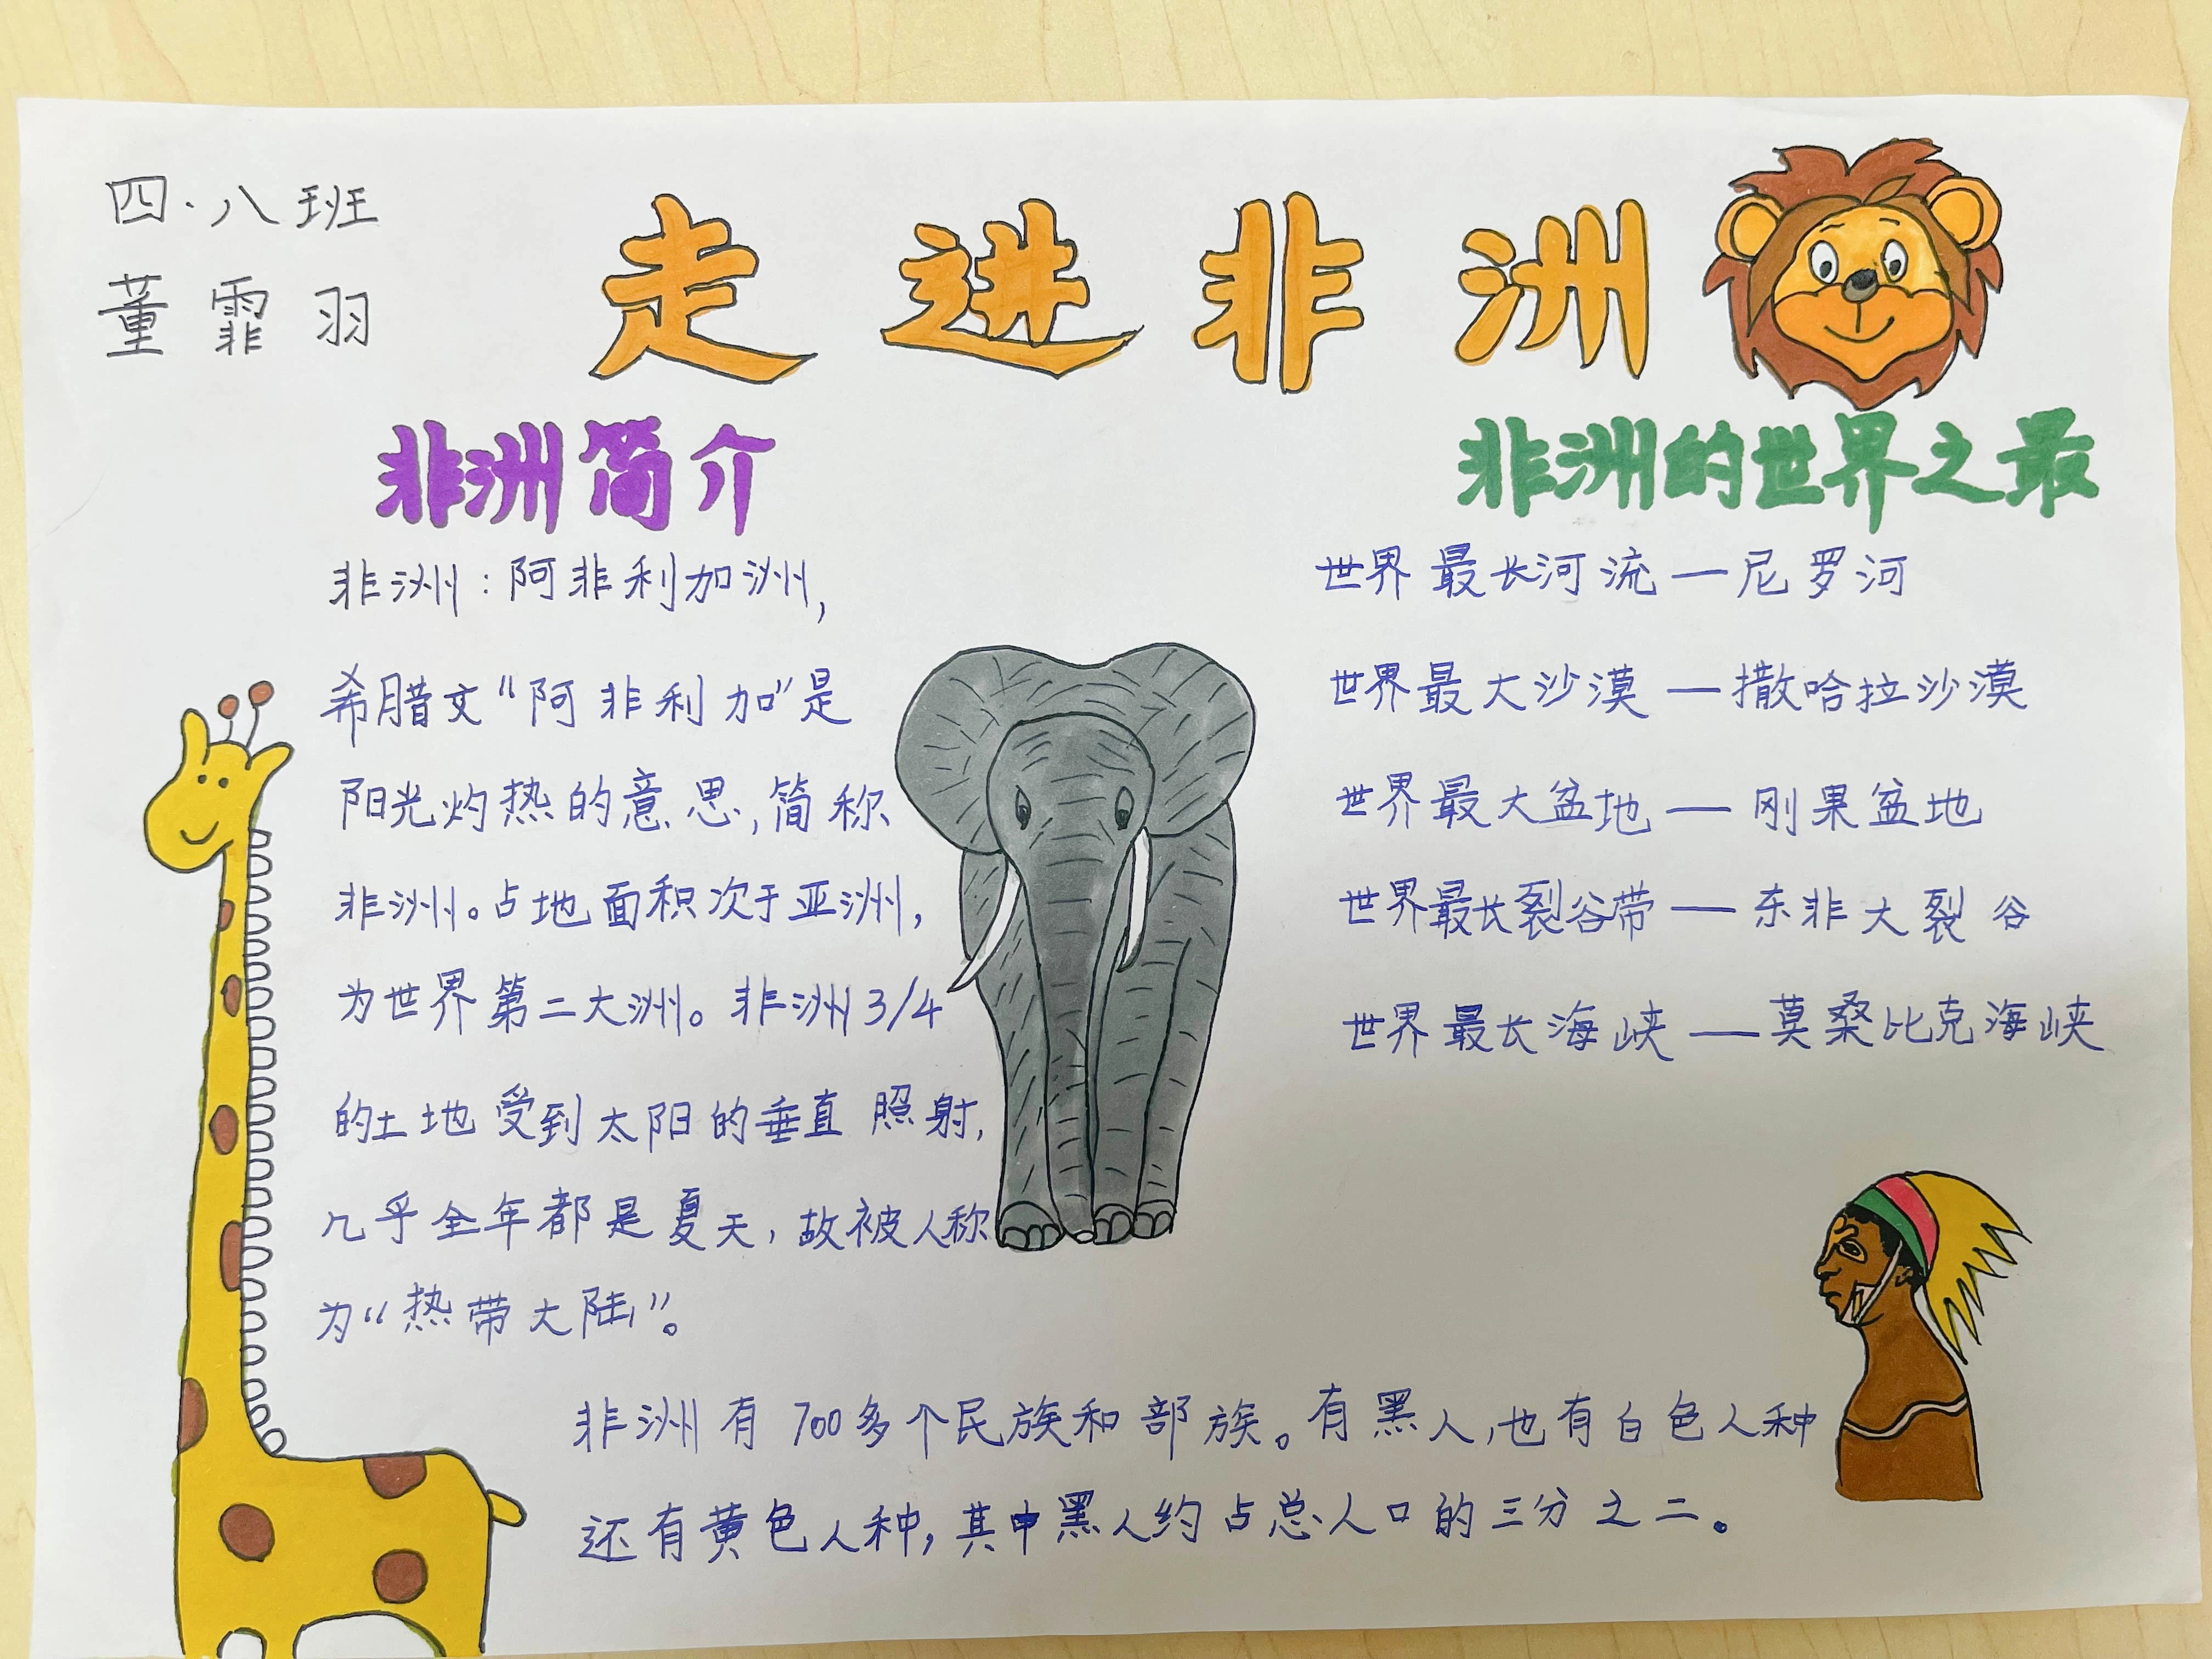 四·八班
董霏羽
走进非洲
非洲简介
非洲：阿非利加洲，
希腊文“阿非利加”是
阳光灼热的意思，简称
非洲。占地面积次于亚洲，
为世界第二大洲。非洲3/4
的土地受到太阳的垂直照射，
几乎全年都是夏天，故被人称
为“热带大陆”。
非洲的世界之最
世界最长河流——尼罗河
世界最大沙漠——撒哈拉沙漠
世界最大盆地——刚果盆地
世界最长裂谷带——东非大裂谷
世界最长海峡——莫桑比克海峡
非洲有700多个民族和部族。有黑人，也有白色人种
还有黄色人种，其中黑人约占总人口的三分之二。